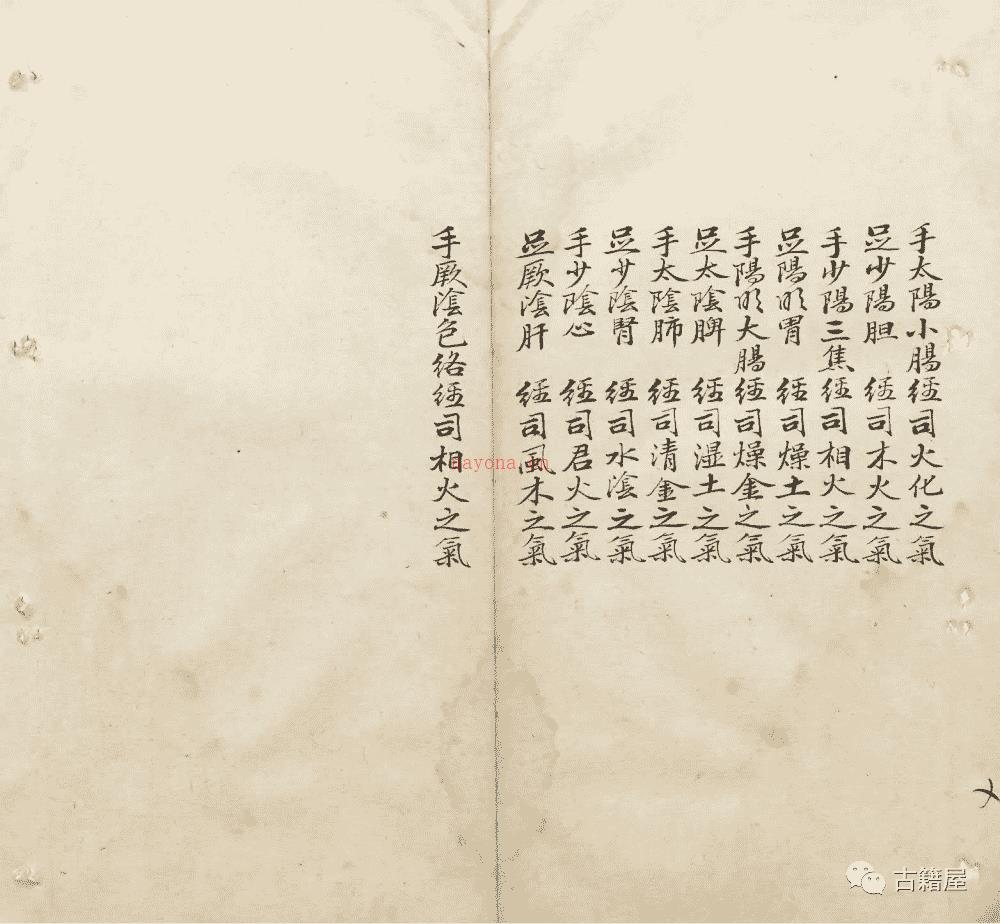 手太陽小腸經司火化之氣
足少陽胆經司木火之氣
手少陽三焦經司相火之氣
足陽明胃經司燥土之氣
手陽明大腸經司燥金之氣
足太陰脾經司湿土之氣
手太陰肺經司清金之氣
足少陰腎經司水陰之氣
手少陰心經司君火之氣
足厥陰肝經司風木之氣
手厥陰色絡經司相火之氣
nayona.cn
古籍屋